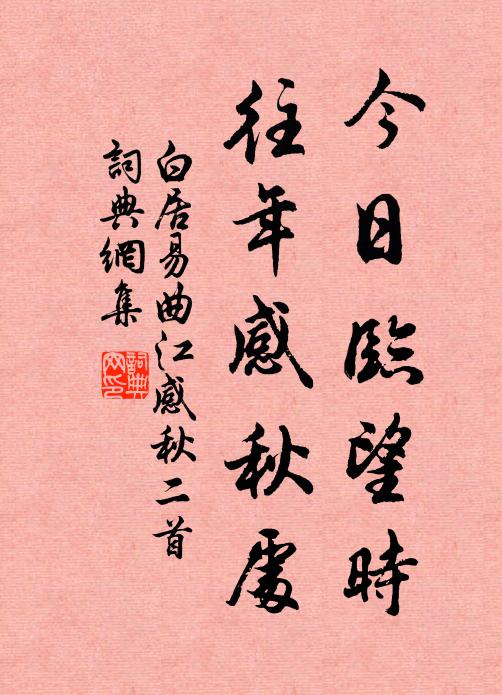 今日臨望時
往年感秋處
白居易曲江感秋二首
詞典網集
詞典
網印